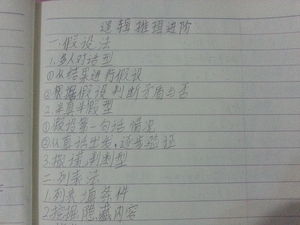 逻辑推理进阶
一.假设法
1.多人对话型
①从结果进行假设
②根据假设判断矛盾与否
2.半真半假型
①假设第一句话情况
②从真话出发,逐步验证
3.按谎判断型
二.列表法
1.列表填条件
2.挖掘隐藏内容